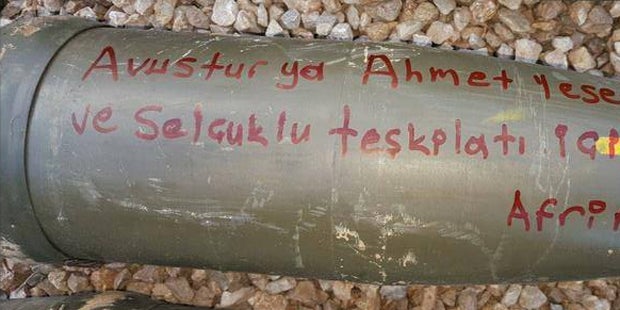 Avusturya Ahmet yese
ve Selçuklu teşkilatı içi
Afrin